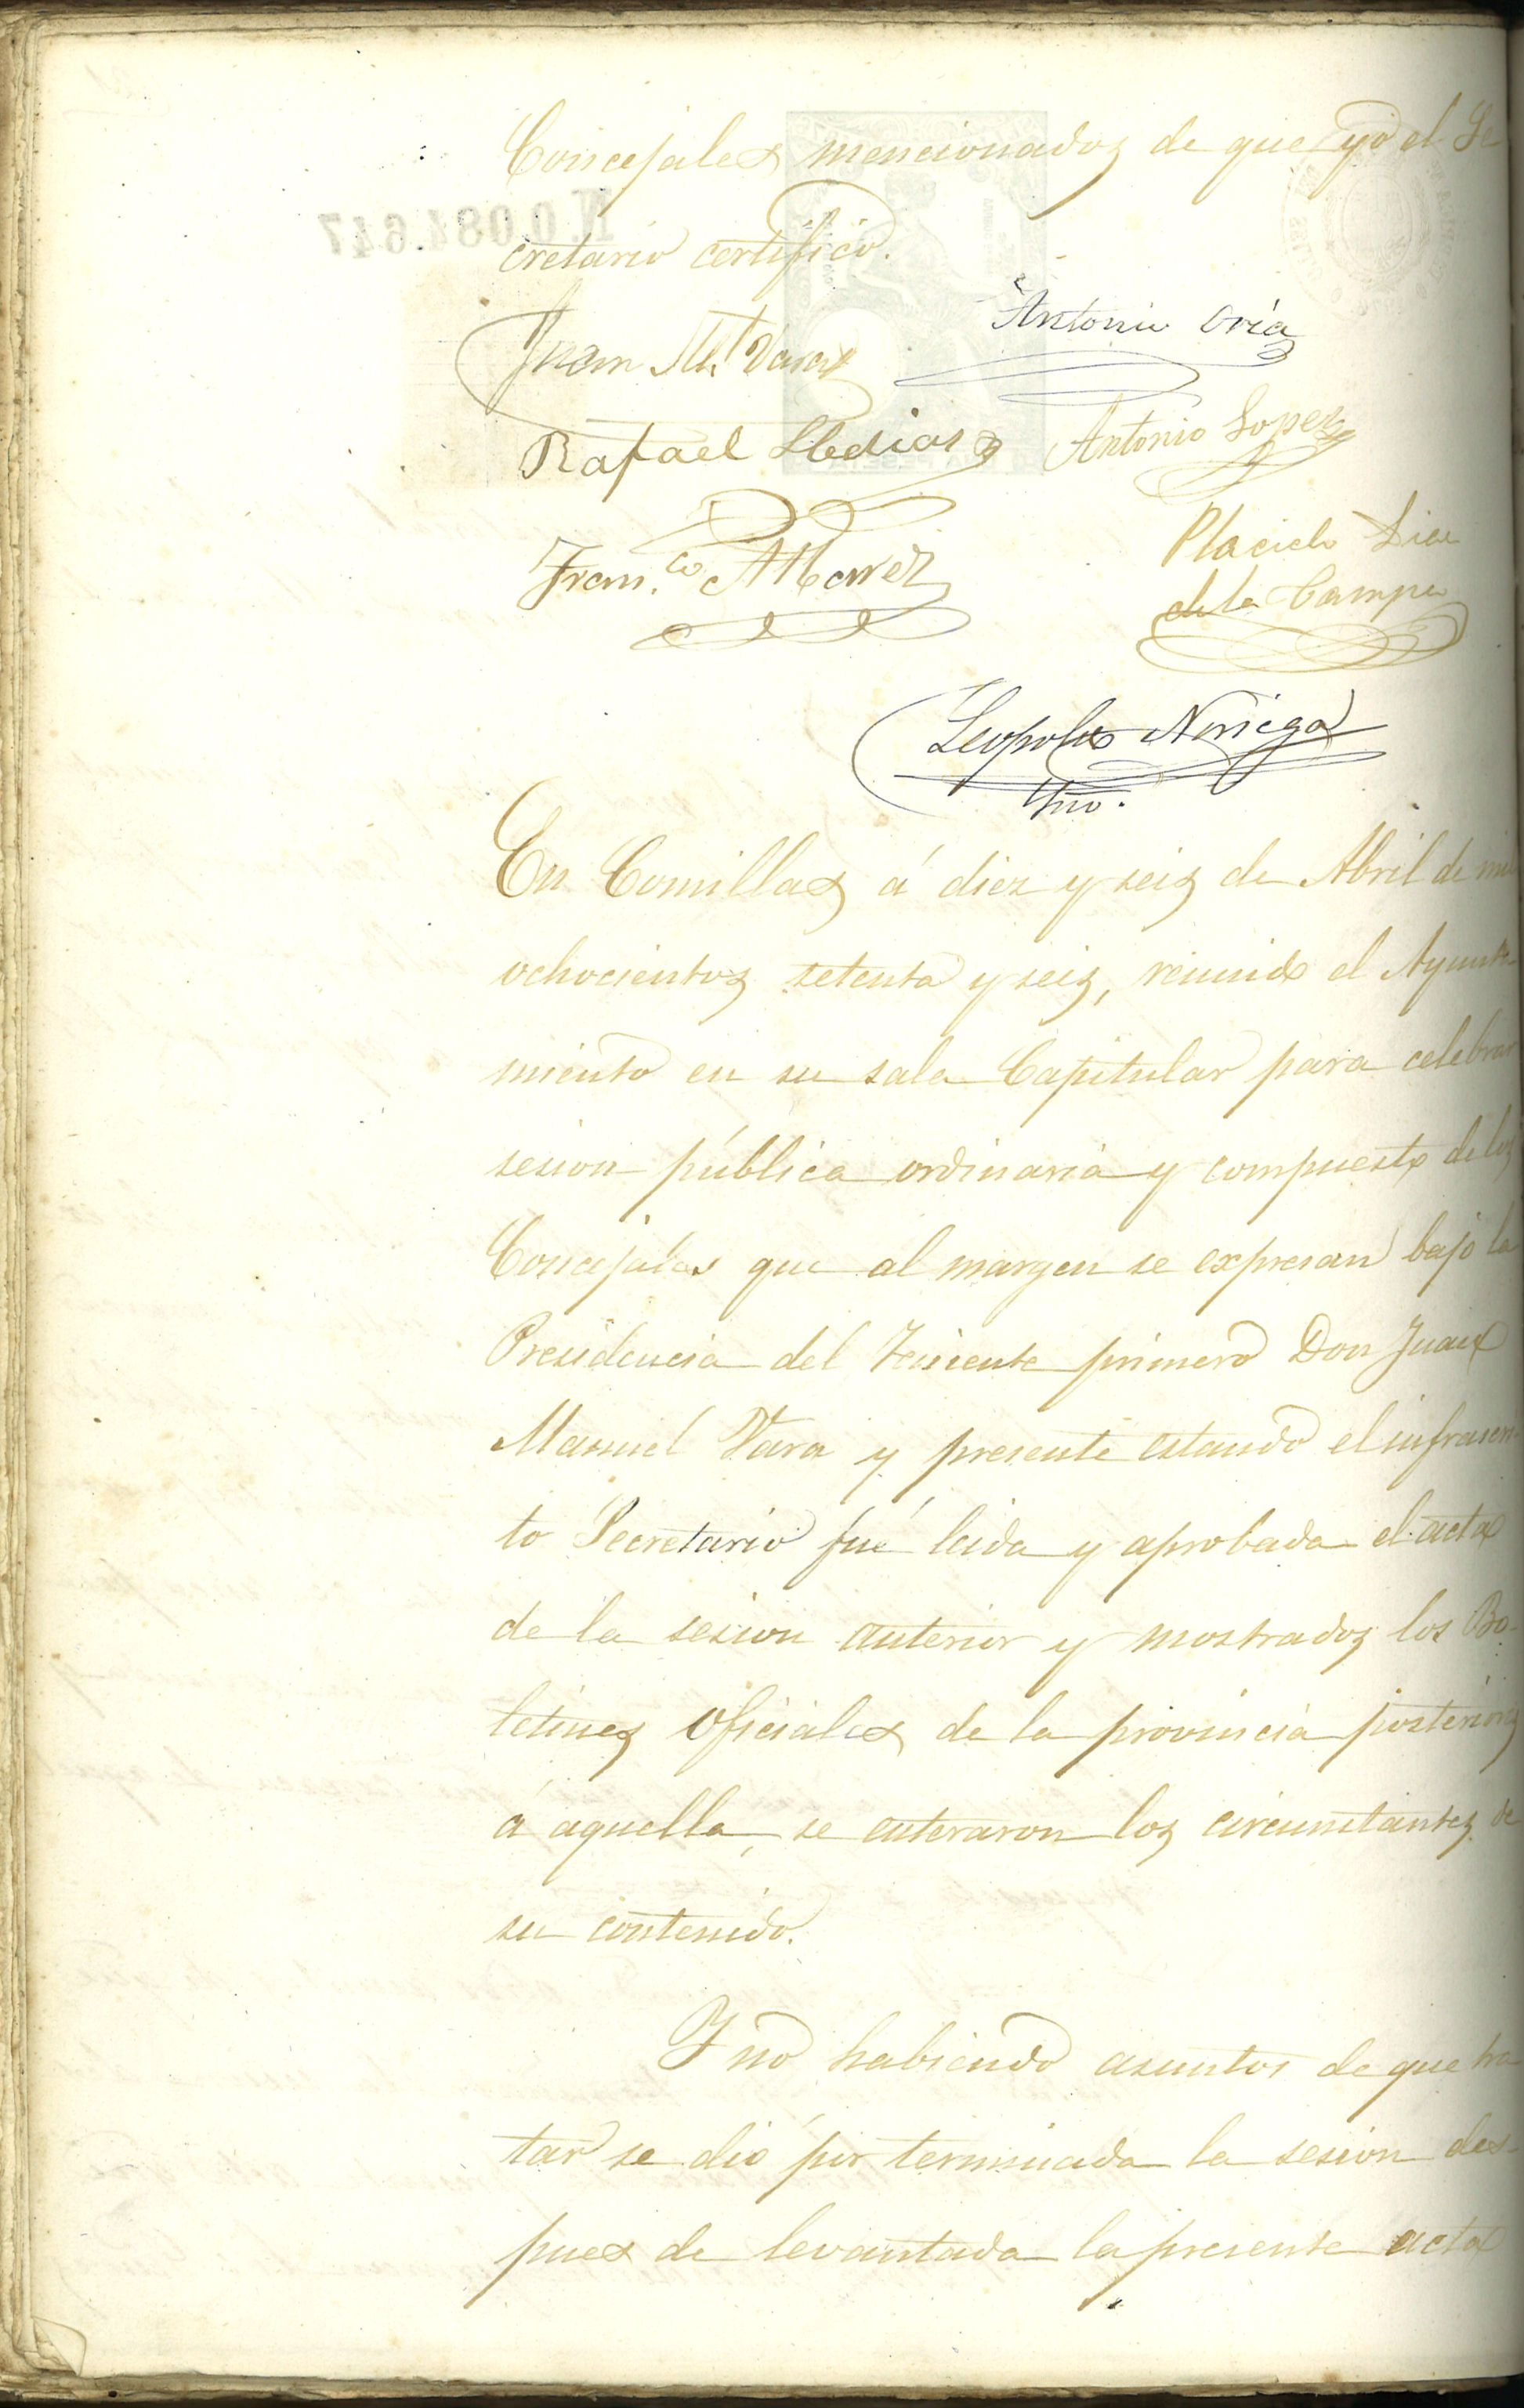 Concejales mencionados de que yo el Se
cretario certifico.
Juan Ml. Vara
Antonio Oria
Rafael Lledias
Antonio Lopez
Fran.co
Placido Diez
de la Campa
Leopoldo Noriega
Srio.
En Comillas á diez y seis de Abril de mil
ochocientos setenta y seis, reunido el Ayunta
miento en su sala Capitular para celebrar
sesion pública ordinaria y compuesto de los
Concejales que al margen se expresan bajo la
Presidencia del Teniente primero Don Juan
Manuel Vara y presente estando el infrascri
to Secretario fué leida y aprobada el acta
de la sesion anterior y mostrados los Bo-
letines Oficiales de la provincia posteriores
á aquella, se enteraron los circunstantes de
su contenido.
Y no habiendo asuntos de que tra
tar se dió por terminada la sesion des-
pues de levantada la presente acta